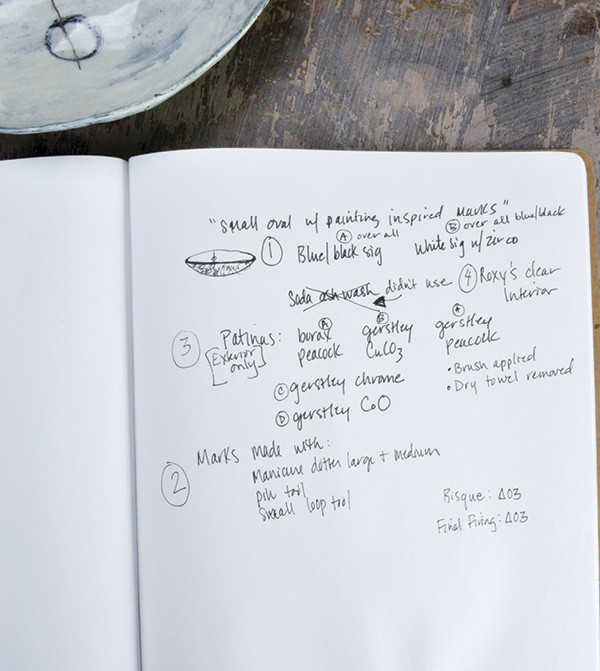 "Small oval w/ painting inspired marks"
① Ⓐ over all Ⓑ over all blue/black
Blue/black sig White sig w/ zirco
Soda ash wash didn't use ④ Roxy's clear
Interior
③ Patinas: Ⓐ borax Ⓑ gerstley Ⓐ gerstley
[Exterior only] peacock CuCO3 peacock
Ⓒ gerstley chrome • Brush applied
Ⓓ gerstley CoO • Dry towel removed
② Marks made with:
Manicure dotter large + medium
pin tool
Small loop tool
Bisque: Δ03
Final Firing: Δ03